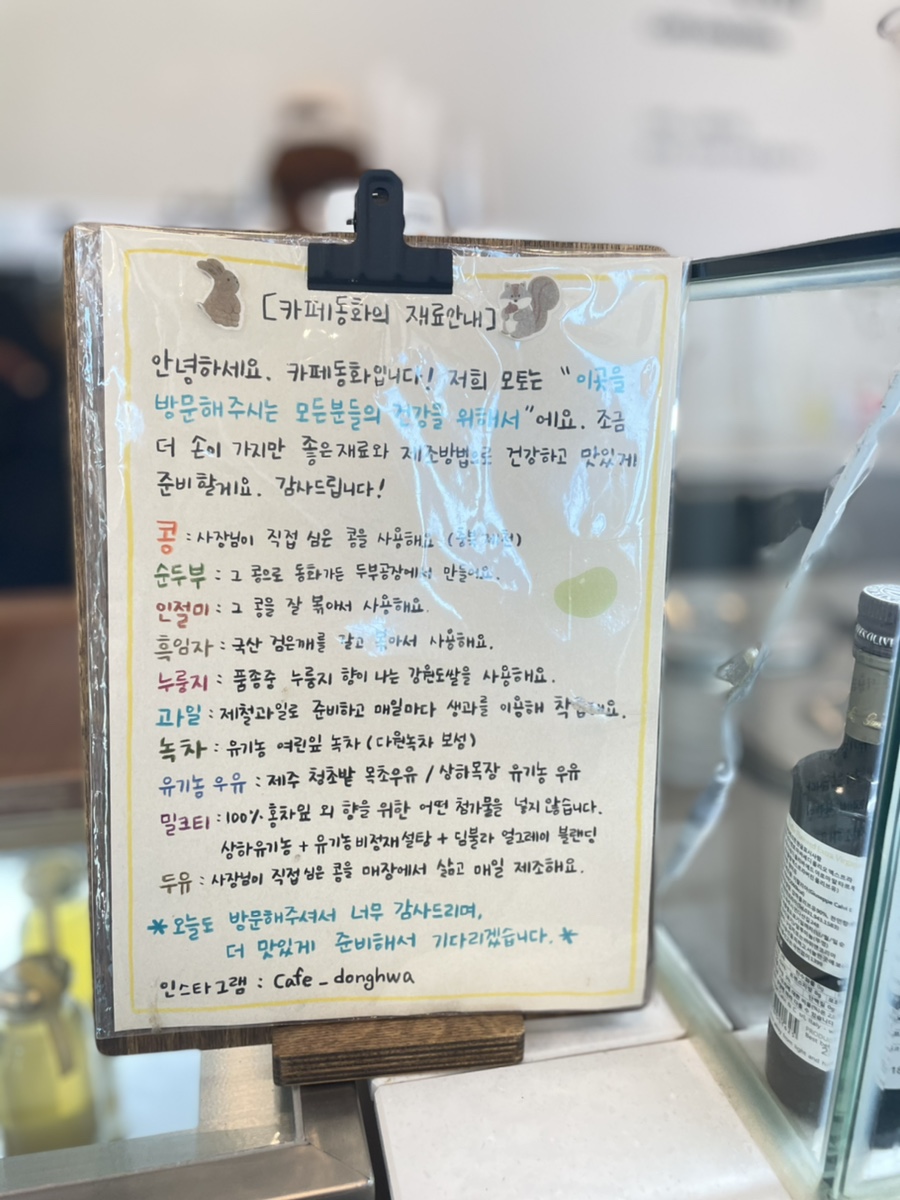 [카페동화의 재료안내]
안녕하세요. 카페동화입니다! 저희 모토는 "이곳을
방문해주시는 모든분들의 건강을 위해서"에요. 조금
더 손이 가지만 좋은재료와 제조방법으로 건강하고 맛있게
준비할게요. 감사드립니다!
콩 : 사장님이 직접 심은 콩을 사용해요
순두부 : 그 콩으로 동화가든 두부공장에서 만들어요.
인절미 : 그 콩을 잘 볶아서 사용해요.
흑임자 : 국산 검은깨를 갈고 볶아서 사용해요.
누룽지 : 품종중 누룽지 향이 나는 강원도쌀을 사용해요.
과일 : 제철과일로 준비하고 매일마다 생과를 이용해
녹차 : 유기농 여린잎 녹차 (다원녹차 보성)
유기농 우유 : 제주 청초밭 목초우유 / 상하목장 유기농 우유
밀크티 : 100% 홍차잎 외 향을 위한 어떤 첨가물을 넣지 않습니다.
상하유기농 + 유기농비정제설탕 + 딤불라 얼그레이 블랜딩
두유 : 사장님이 직접심은 콩을 매장에서 삶고 매일 제조해요.
*오늘도 방문해주셔서 너무 감사드리며,
더 맛있게 준비해서 기다리겠습니다.*
인스타그램 : Cafe_donghwa